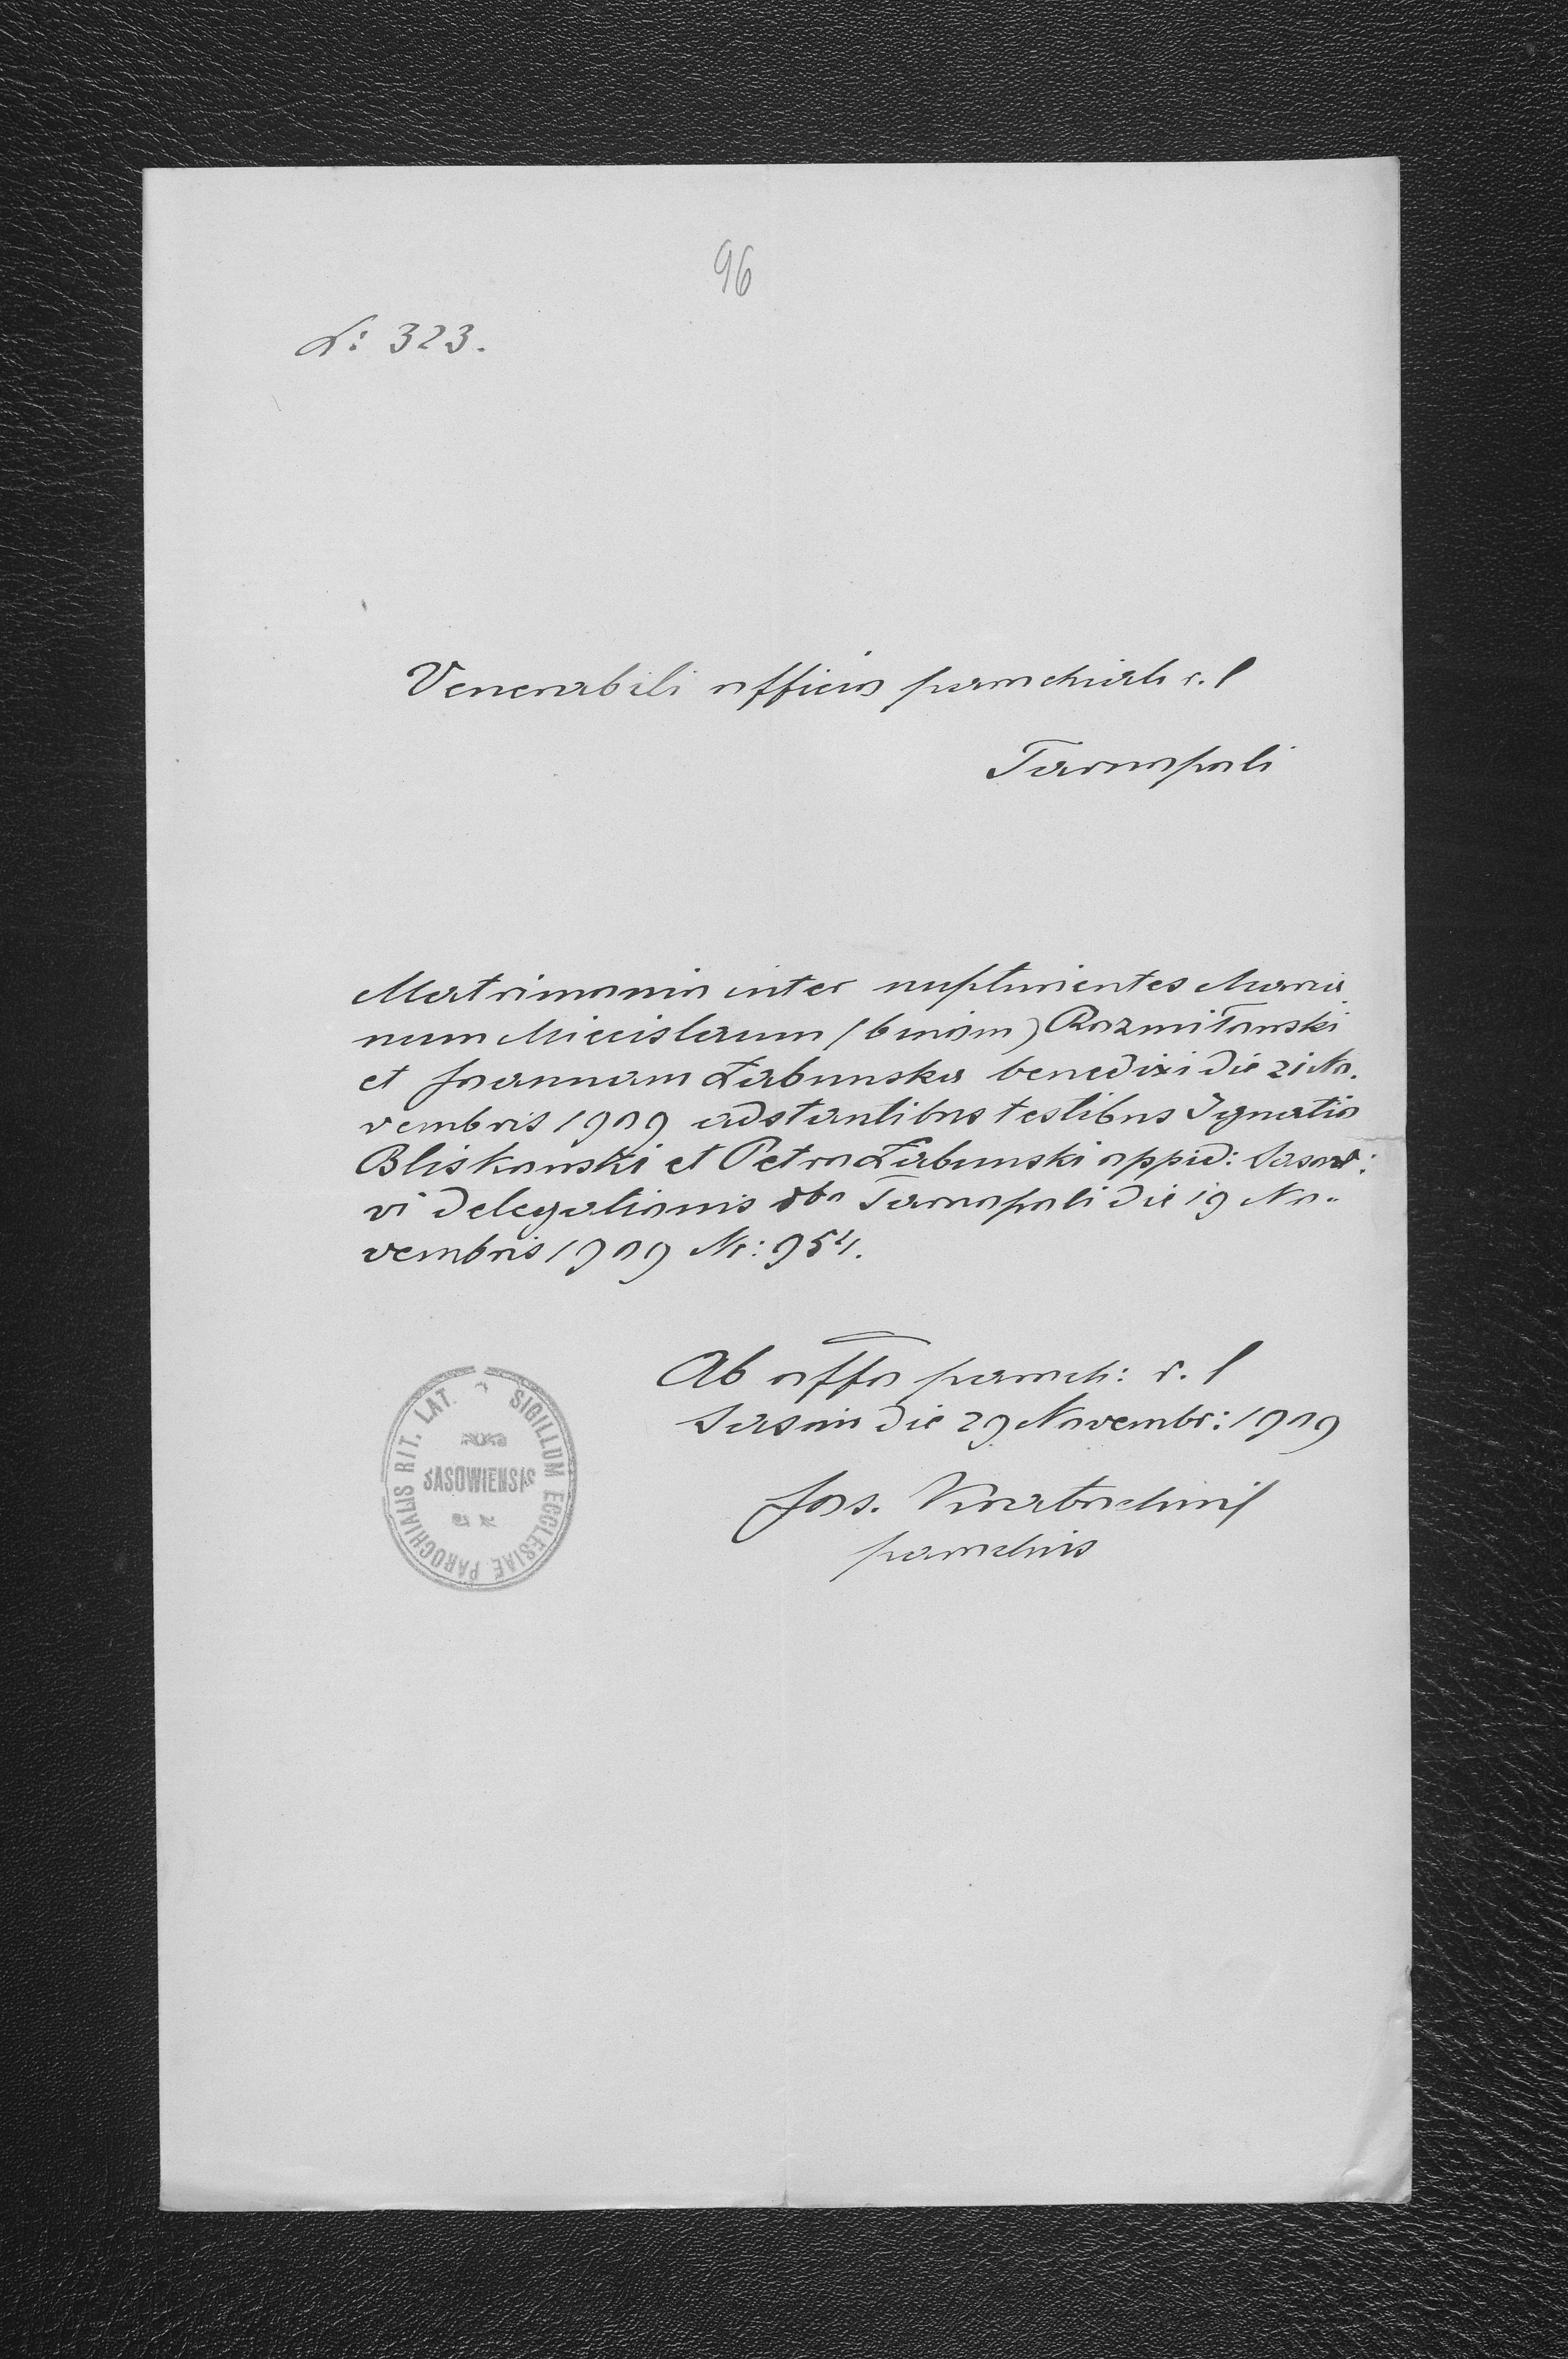 96
L: 323.
Venerabili officio parochiali r. l
Tarnopoli
Matrimonio inter nupturientes Maria
num Miecislaum (binom) Rozmiłowski
et Joannam Łabunska benedixi die 21 No.
vembris 1909 adstantibus testibus Ignatio
Bliskowski et Petro Łabunski oppid: Sasow:
vi delegationis dto Tarnopoli die 19 No-
vembris 1909 Nr: 954.
Ab offo paroch: r. l
Sasoviae die 29 Novembr: 1909
Jos.
parochus
SIGILLUM ECCLESIAE PAROCHIALIS RIT. LAT.
SASOWIENSIS